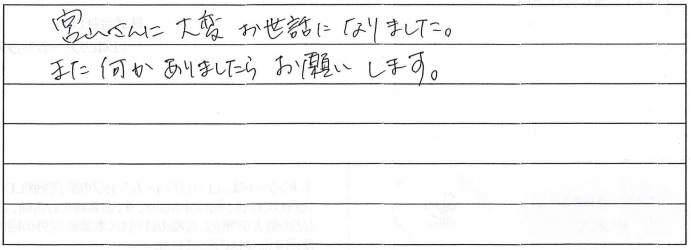 宮山さんに大変お世話になりました。
また何かありましたらお願いします。